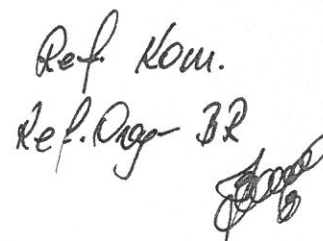 Ref. Kom.
Ref. Orga BR